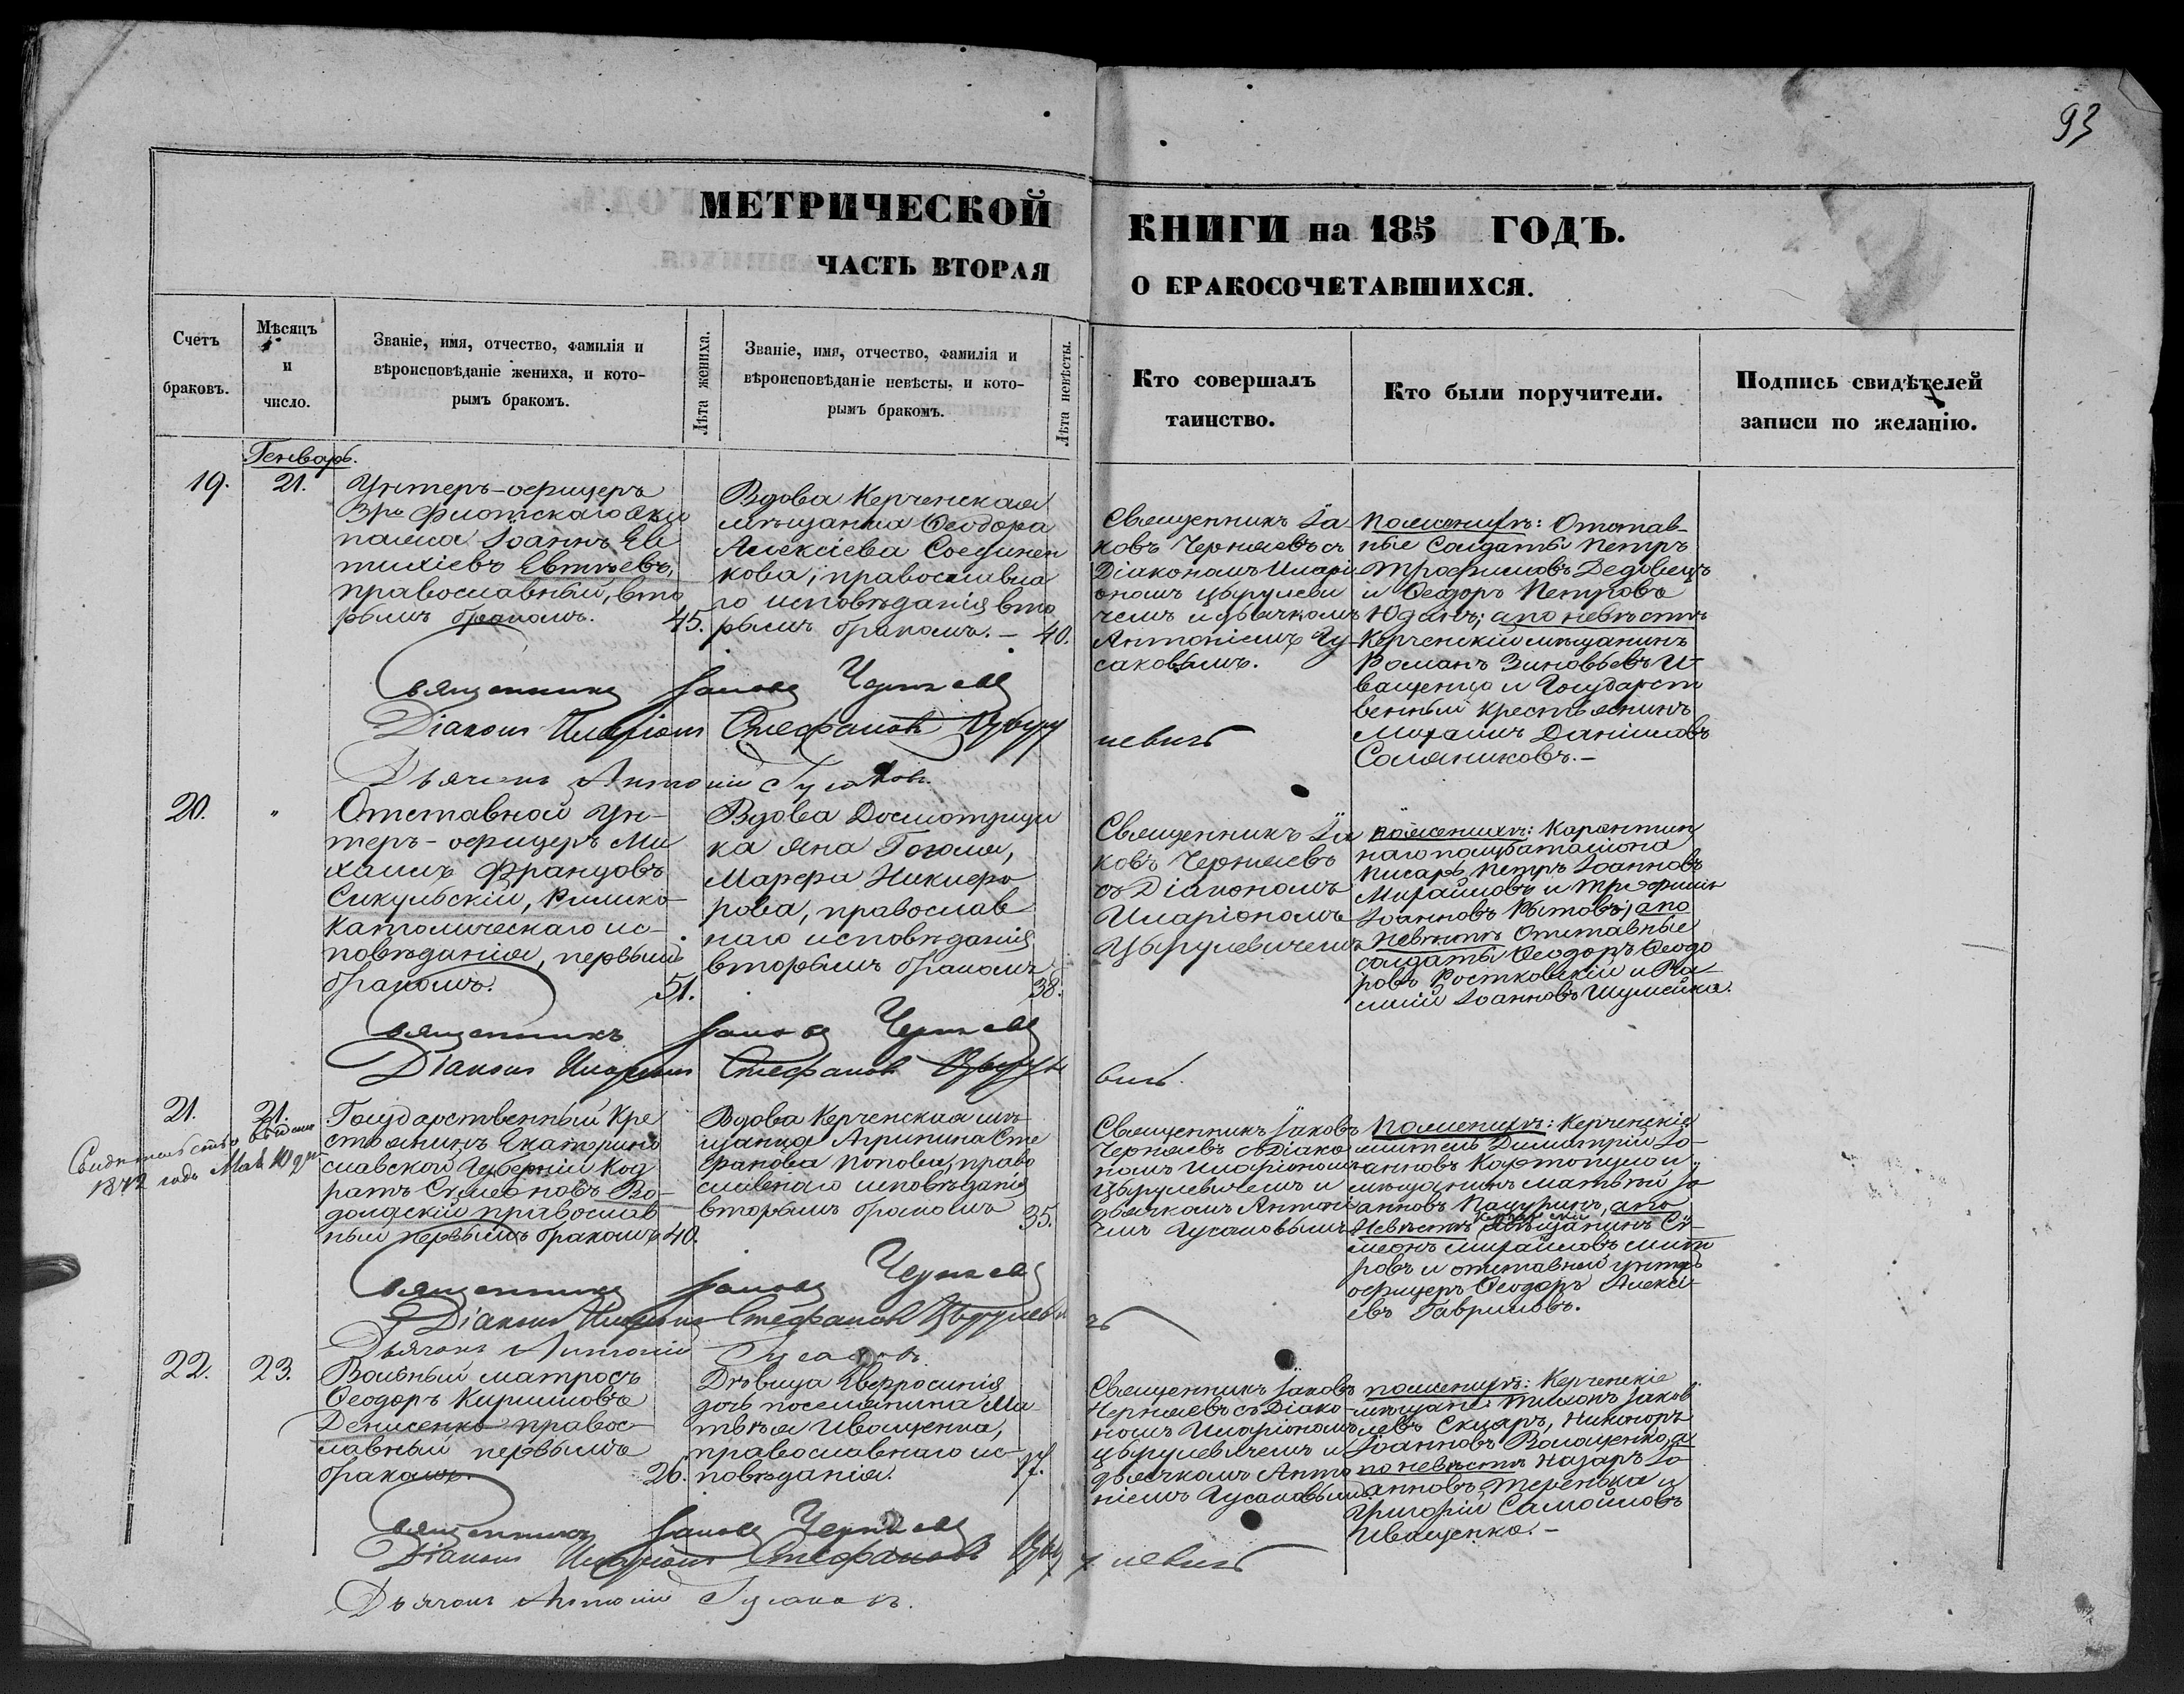 93
МЕТРИЧЕСКОЙ
КНИГИ на 185 ГОДЪ.
ЧАСТЬ ВТОРАЯ
О ЕРАКОСОЧЕТАВШИХСЯ.
Счетъ
браковъ.
Мѣсяцъ
и
число.
Званіе, имя, отчество, фамилія и
вѣроисповѣданіе жениха, и кото-
рымъ бракомъ.
Лѣта жениха.
Званіе, имя, отчество, фамилія и
вѣроисповѣданіе невѣсты, и кото-
рымъ бракомъ.
Лѣта невѣсты.
Кто совершалъ
таинство.
Кто были поручители.
Подпись свидѣтелей
записи по желанію.
Генварь.
19.
21.
Унтеръ-офицеръ
флотскаго эки
пажа Іоаннъ Ев
тихіевъ Евтѣевъ,
православный, вто
рымъ бракомъ.
45.
Вдова Керченская
мѣщанка Ѳеодора
Алексіева Соединен
кова, православна
го исповѣданія вто
рымъ бракомъ. –
40.
Священникъ Іа
ковъ Черняевъ съ
Діакономъ Илари
ономъ Цыруле­ви
чемъ и дьячкомъ
Антоніемъ Гу-
саковымъ.
По женихѣ: Отстав-
ные Солдаты Петръ
Трофимовъ Дедовецъ
и Ѳеодоръ Петровъ
Юдинъ; а по невѣстѣ
Керченскій мѣщанинъ
Романъ Зиновьевъ И-
ващенко и Государст
венный крестьянинъ
Михаилъ Даніиловъ
Соляниковъ. –
Священникъ Іаковъ Черняевъ
Діаконъ Иларіонъ Стефановъ Цыру
левичъ
Дьячекъ Антоній Гусаковъ.
20.
"
Отставной Ун-
теръ-офицеръ Ми
хаилъ Францовъ
Сикульскій, Римско-
католическаго ис-
повѣданія, первымъ
бракомъ.
51.
Вдова Досмотрщи
ка Яна Гоголя,
Марфа Никифо
рова, православ
наго исповѣданія
вторымъ бракомъ
38.
Священникъ Іа
ковъ Черняевъ
съ Діакономъ
Иларіономъ
Цырулевичемъ
По женихѣ: Карантин
наго полубаталіона
Писарь Петръ Іоанновъ
Михайловъ и Трофимъ
Іоанновъ Рытовъ; а по
невѣстѣ Отставные
солдаты Ѳеодоръ Ѳеодо
ровъ Ростковскій и
Іоанновъ Шумейка.
Священникъ Іаковъ Черняевъ
Діаконъ Иларіонъ Стефановъ Цырул
вичъ.
21.
21.
Свидѣтельство выдано
1872 года Мая 10 дня
Государственный Кре
стьянинъ Екатерино
славской Губерніи Код
ратъ Симеоновъ Во-
долдскій православ
ный первымъ бракомъ
40.
Вдова Керченская мѣ
щанка Агрипина Сте
фанова Попова, право
славнаго исповѣданія
вторымъ бракомъ
35.
Священникъ Іаковъ
Черняевъ съ Діако
номъ Иларіономъ
Цырулевичемъ и
дьячкомъ Антоні
емъ Гусаковымъ
По женихѣ: Керченскіе
жители Димитрій Іо-
анновъ Картопуло и
мѣщанинъ Матвѣй Іо
анновъ Пацуринъ, а по
невѣстѣ мѣщанинъ Си-
меонъ Михайловъ
ровъ и отставной унтеръ
офицеръ Ѳеодоръ Алексі-
евъ Гавриловъ.
Священникъ Іаковъ Черняевъ
Діаконъ Иларіонъ Стефановъ Цырулеви
чъ
Дьячекъ Антоній Гусаковъ.
22.
23.
Вольный матросъ
Ѳеодоръ Кирилловъ
Денисенко правос-
лавный первымъ
бракомъ.
26.
Дѣвица Евфросинія
дочь поселянина Ма
твѣя Иващенка,
православнаго ис-
повѣданія.
17.
Священникъ Іаковъ
Черняевъ съ Діако-
номъ Иларіономъ
Цырулевичемъ и
дьячкомъ Анто
ніемъ Гусаковымъ
По женихѣ: Керченскіе
мѣщане: Тихонъ Іаков
левъ Скляръ, Никоноръ
Іоанновъ Волощенко, а
по невѣстѣ Назаръ Іо-
анновъ Терешка и
Григорій Самойловъ
Иващенко. –
Священникъ Іаковъ Черняевъ
Діаконъ Иларіонъ Стефановъ Цыру
левичъ
Дьячекъ Антоній Гусаковъ.